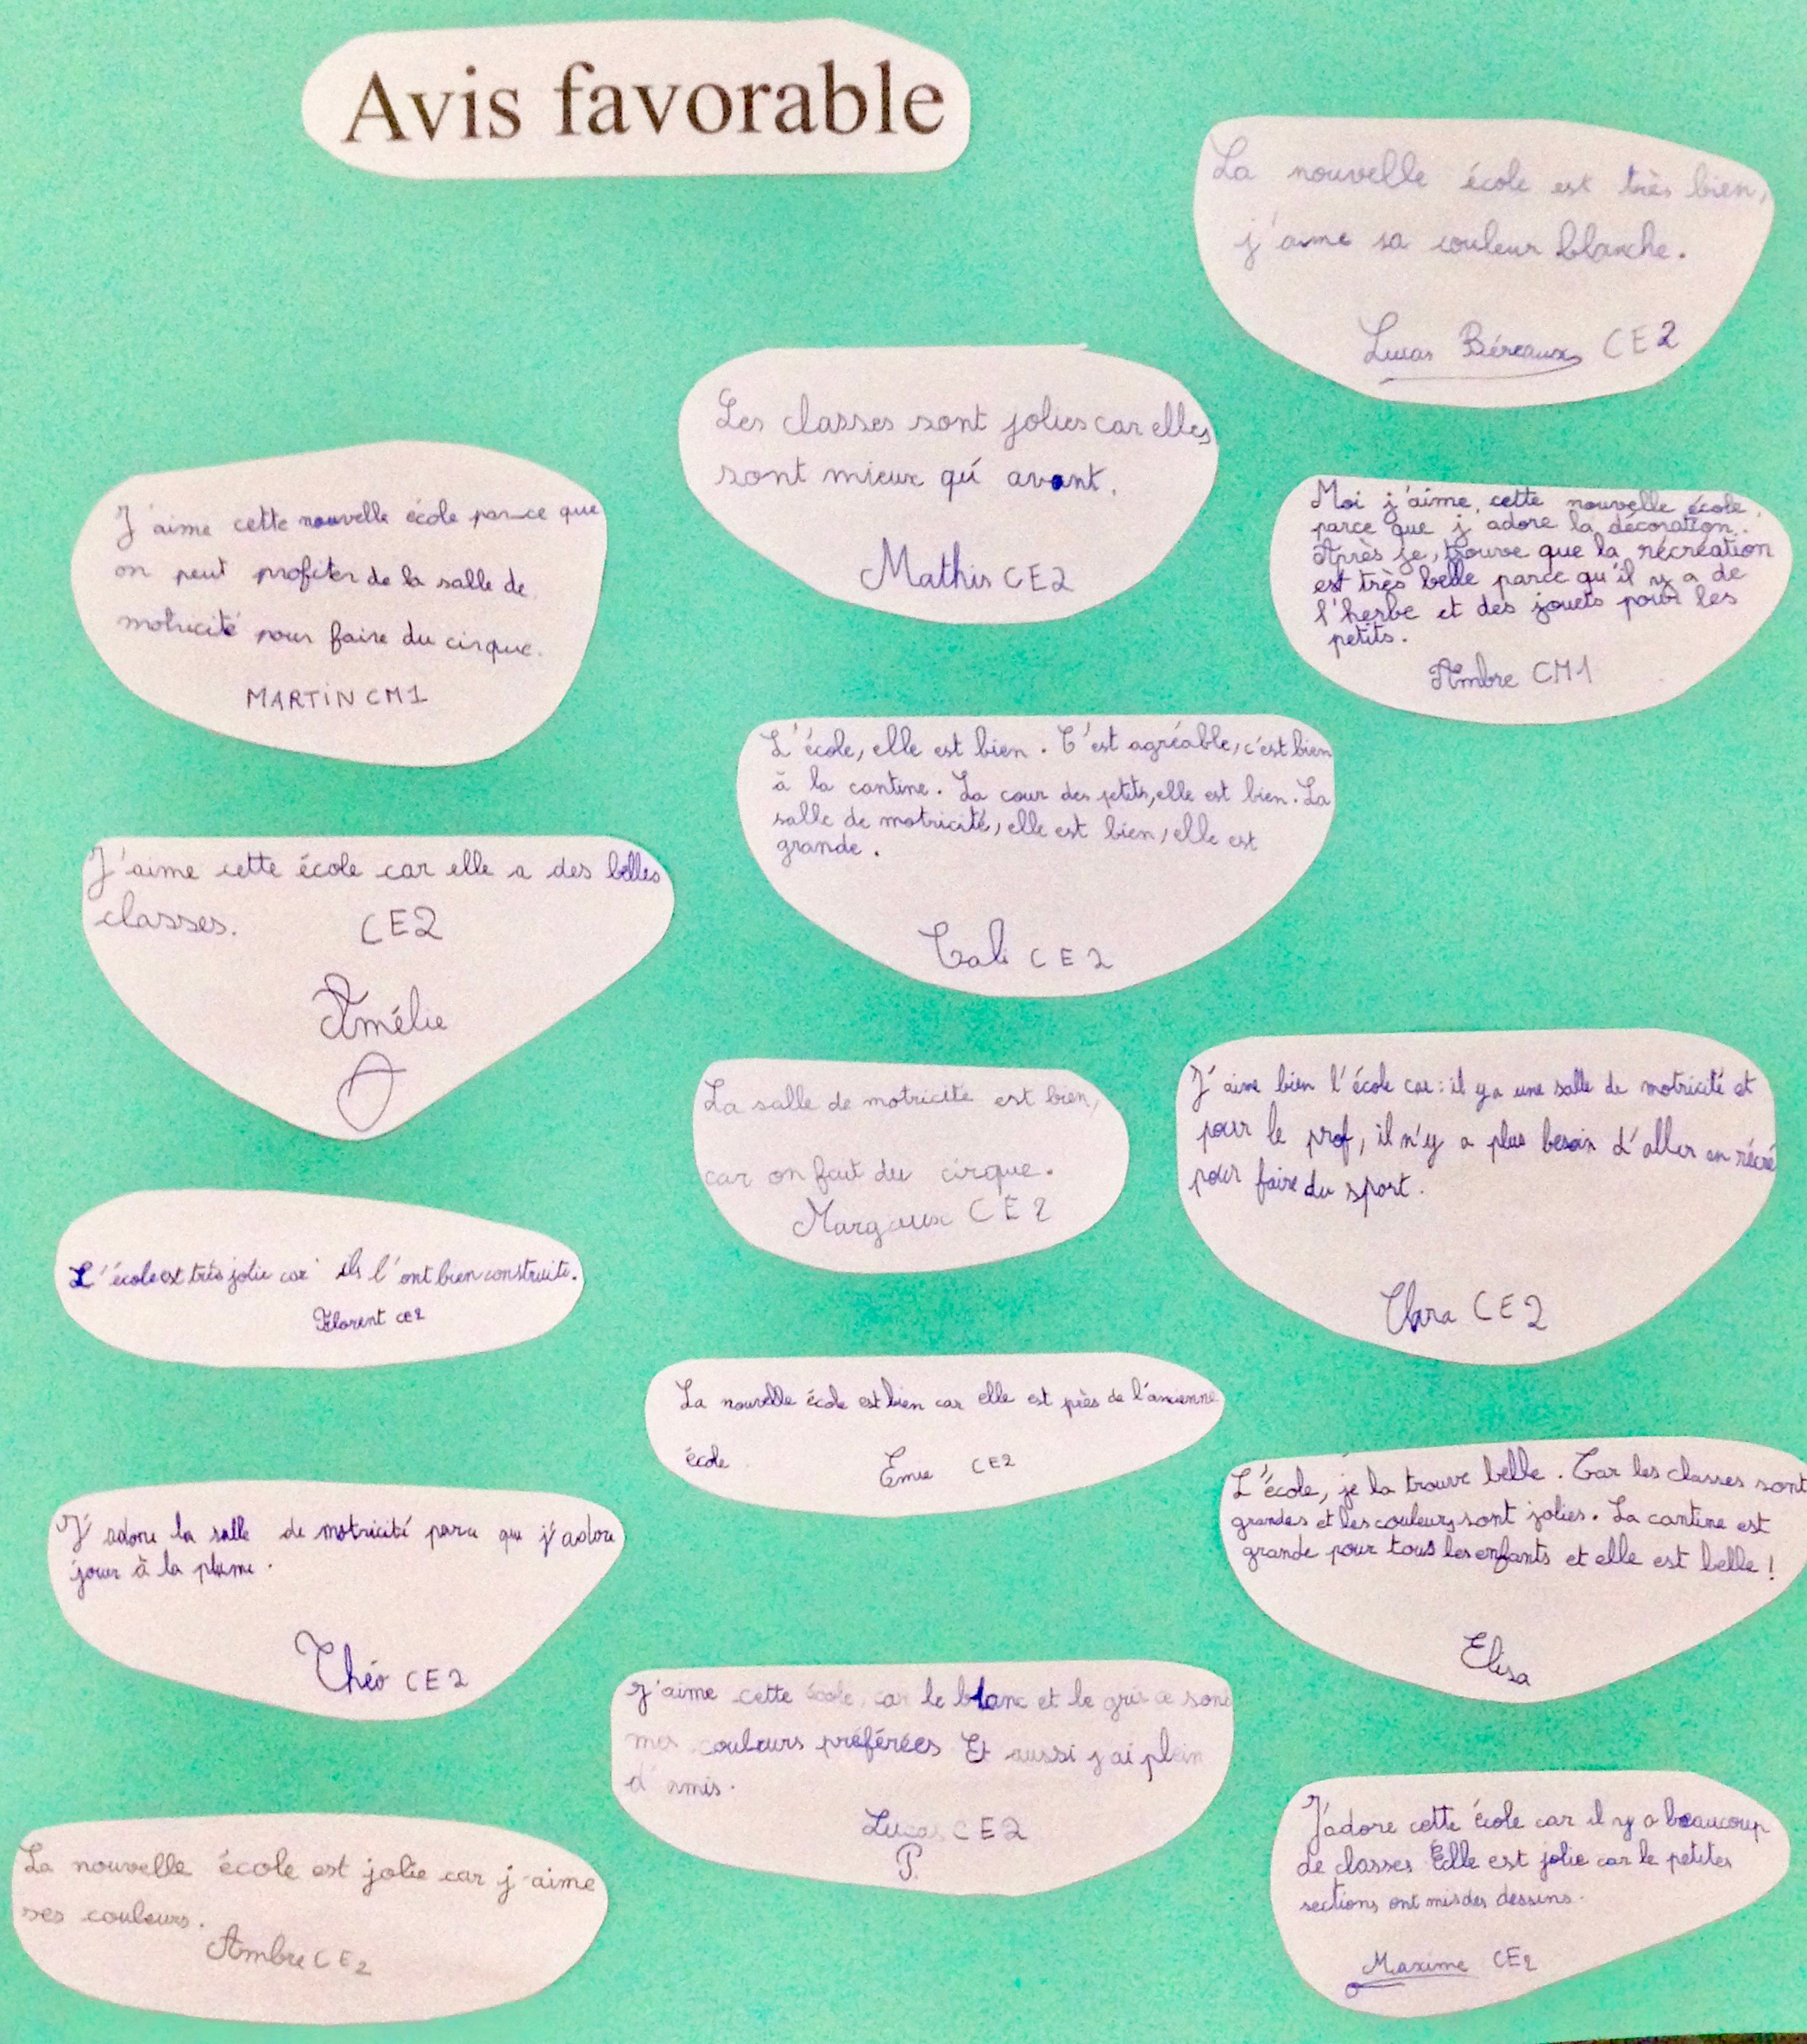 Avis favorable
La nouvelle école est très bien,
j'aime sa couleur blanche.
Lucas Béreaux CE2
Les classes sont jolies car elles
sont mieux qu'avant.
Mathis CE2
J'aime cette nouvelle école parce que
on peut profiter de la salle de
motricité pour faire du cirque.
MARTIN CM1
Moi j'aime cette nouvelle école
parce que j'adore la décoration.
Après je trouve que la récréation
est très belle parce qu'il y a de
l'herbe et des jouets pour les
petits.
Ambre CM1
L'école, elle est bien. C'est agréable, c'est bien
à la cantine. La cour des petits, elle est bien. La
salle de motricité, elle est bien, elle est
grande.
Cali CE2
J'aime cette école car elle a des belles
classes. CE2
Amélie
La salle de motricité est bien,
car on fait du cirque.
Margaux CE2
J'aime bien l'école car : il y a une salle de motricité et
pour le prof, il n'y a plus besoin d'aller en récré
pour faire du sport.
Clara CE2
L'école est très jolie car ils l'ont bien construite.
Florent CE2
La nouvelle école est bien car elle est près de l'ancienne
école.
Emie CE2
L'école, je la trouve belle. Car les classes sont
grandes et les couleurs sont jolies. La cantine est
grande pour tous les enfants et elle est belle !
Elisa
J'adore la salle de motricité parce que j'adore
jouer à la plume.
Théo CE2
J'aime cette école, car le blanc et le gris ce sont
mes couleurs préférées Et aussi j'ai plein
d'amis.
Lucas CE2
P.
La nouvelle école est jolie car j'aime
ses couleurs.
Ambre CE2
J'adore cette école car il y a beaucoup
de classes Elle est jolie car le petites
sections ont mis des dessins.
Maxime CE2